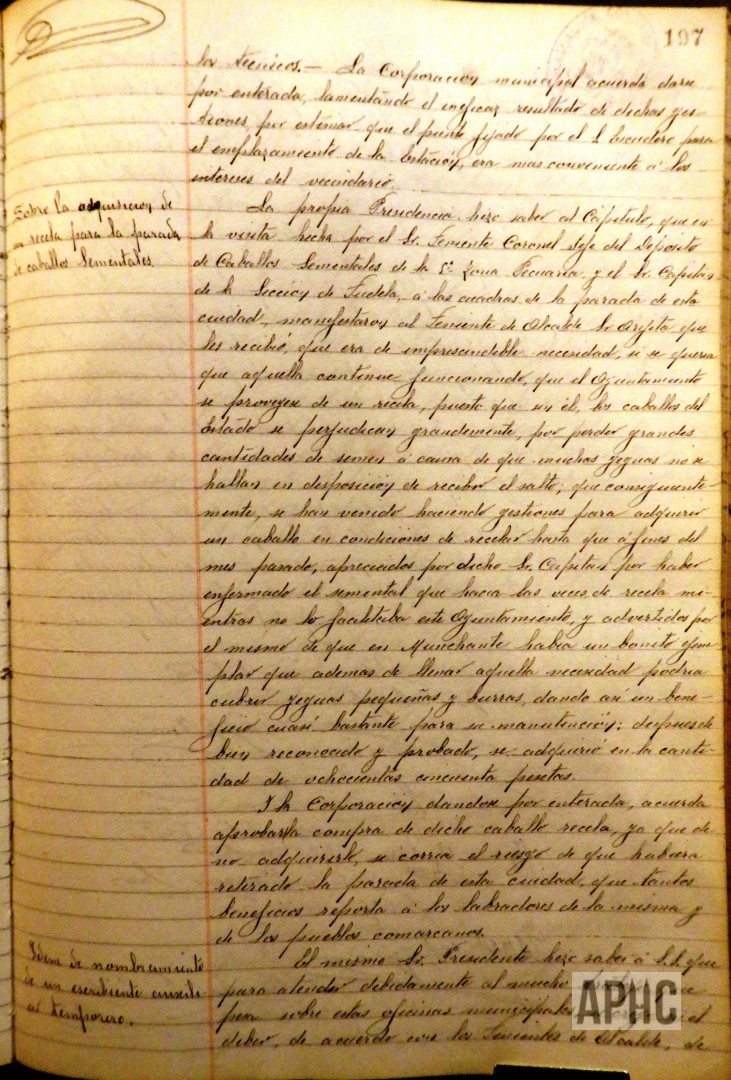 197
los tecnicos.— La Corporacion municipal acuerda darse
por enterada, lamentando el ineficaz resultado de dichas ges-
tiones, por estimar que el punto fijado por el S. Escudero para
el emplazamiento de la Estacion, era mas conveniente á los
intereses del vecindario.
Sobre la adquisicion de
un recela para la parada
de caballos Sementales.
La propia Presidencia hizo saber al Capitulo, que en
la visita hecha por el Sr. Teniente Coronel Jefe del Deposito
de Caballos Sementales de la 5ª Zona Pecuaria, y el Sr. Capitan
de la Seccion de Tudela, á las cuadras de la parada de esta
ciudad, manifestaron al Teniente de Alcalde Sr. Argita que
les recibió, que era de imprescindible necesidad, si se queria
que aquella continue funcionando, que el Ayuntamiento
se proveyese de un recela, puesto que sin él, los caballos del
Estado se perjudican grandemente, por perder grandes
cantidades de semen á causa de que muchas yeguas no se
hallan en disposicion de recibir el salto; que consiguiente-
mente, se han venido haciendo gestiones para adquirir
un caballo en condiciones de recelar hasta que á fines del
mes pasado, apreciados por dicho Sr. Capitan por haber
enfermado el semental que hacia las veces de recela mi-
entras no lo facilitaba este Ayuntamiento, y advertidos por
el mismo de que en Munchante habia un bonito ejem-
plar que ademas de llenar aquella necesidad podria
cubrir yeguas pequeñas y burras, dando asi un bene-
ficio cuasi bastante para su manutencion; despues de
bien reconocido y probado, se adquirió en la canti-
dad de ochocientas cincuenta pesetas.
Y la Corporacion dandose por enterada, acuerda
aprobar la compra de dicho caballo recela, ya que de
no adquirirlo, se corria el riesgo de que hubiera
retirado la parada de esta ciudad, que tantos
beneficios reporta á los labradores de la misma y
de los pueblos comarcanos.
Idem de nombramiento
de un escribiente auxili-
ar temporero.
El mismo Sr. Presidente hizo saber á S.S. que
para atender debidamente al mucho
pesa sobre estas oficinas municipales el
deber, de acuerdo con los Tenientes de Alcalde, de
APHC